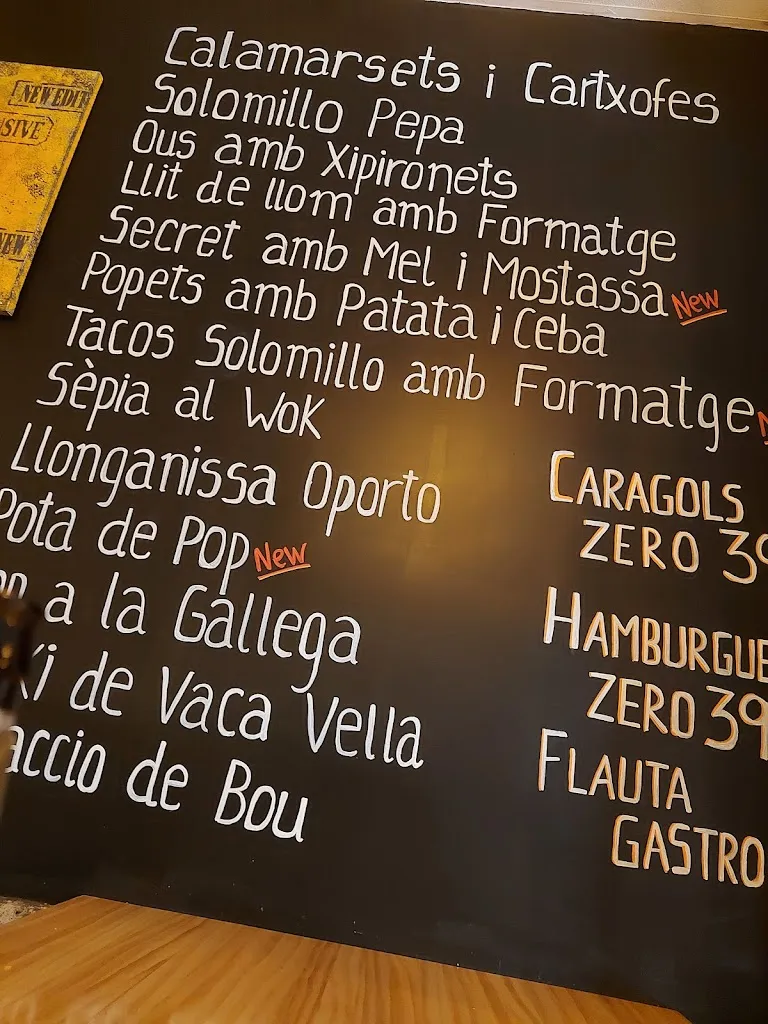 NEW EDIT
SIVE
NEW
Calamarsets i Cartxofes
Solomillo Pepa
Ous amb Xipironets
Llit de llom amb Formatge
Secret amb Mel i Mostassa New
Popets amb Patata i Ceba
Tacos Solomillo amb Formatge
Sèpia al Wok
Llonganissa Oporto
Pota de Pop New
a la Gallega
Ki de Vaca Vella
accio de Bou
CARAGOLS
ZERO 39
HAMBURGUE
ZERO 39
FLAUTA
GASTRO